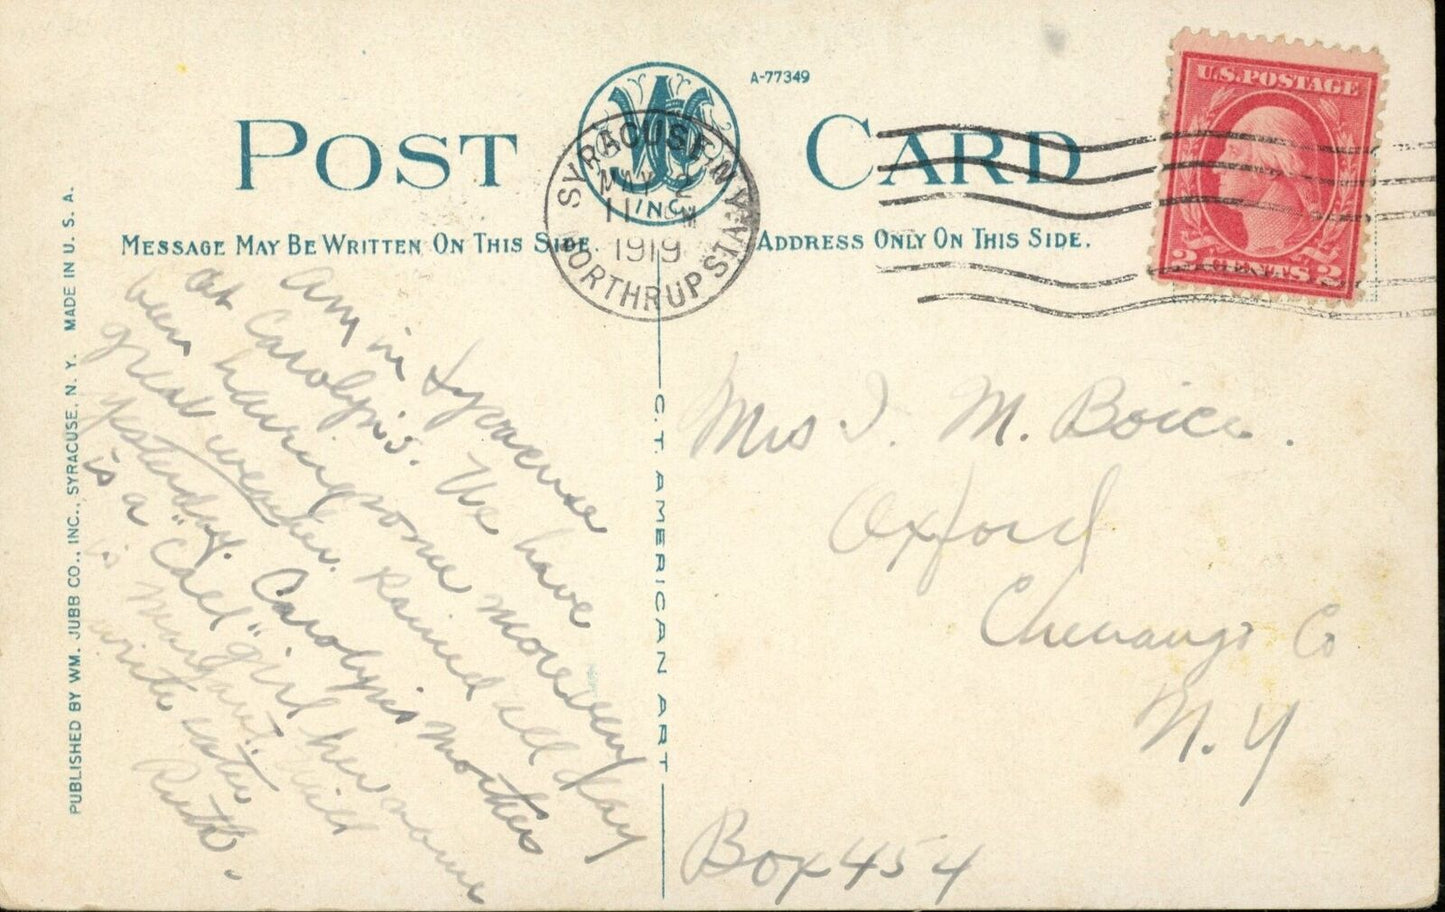 A-77349
POST CARD
INC
SYRACUSE, N.Y.
MAY 2
11 M
1919
NORTHRUP STA.
U.S. POSTAGE
2 CENTS 2
MESSAGE MAY BE WRITTEN ON THIS SIDE.
ADDRESS ONLY ON THIS SIDE.
PUBLISHED BY WM. JUBB CO., INC., SYRACUSE, N. Y. MADE IN U. S. A.
C. T. AMERICAN ART
Am in Syracuse
at Carolyn's. We have
been having some
great weather. Rained all day
yesterday. Carolyn's mother
is a "Call" girl her name
is Margaret. Will
write later
Ruth.
Mrs I. M. Boice.
Oxford
Chenango Co
N. Y
Box 454